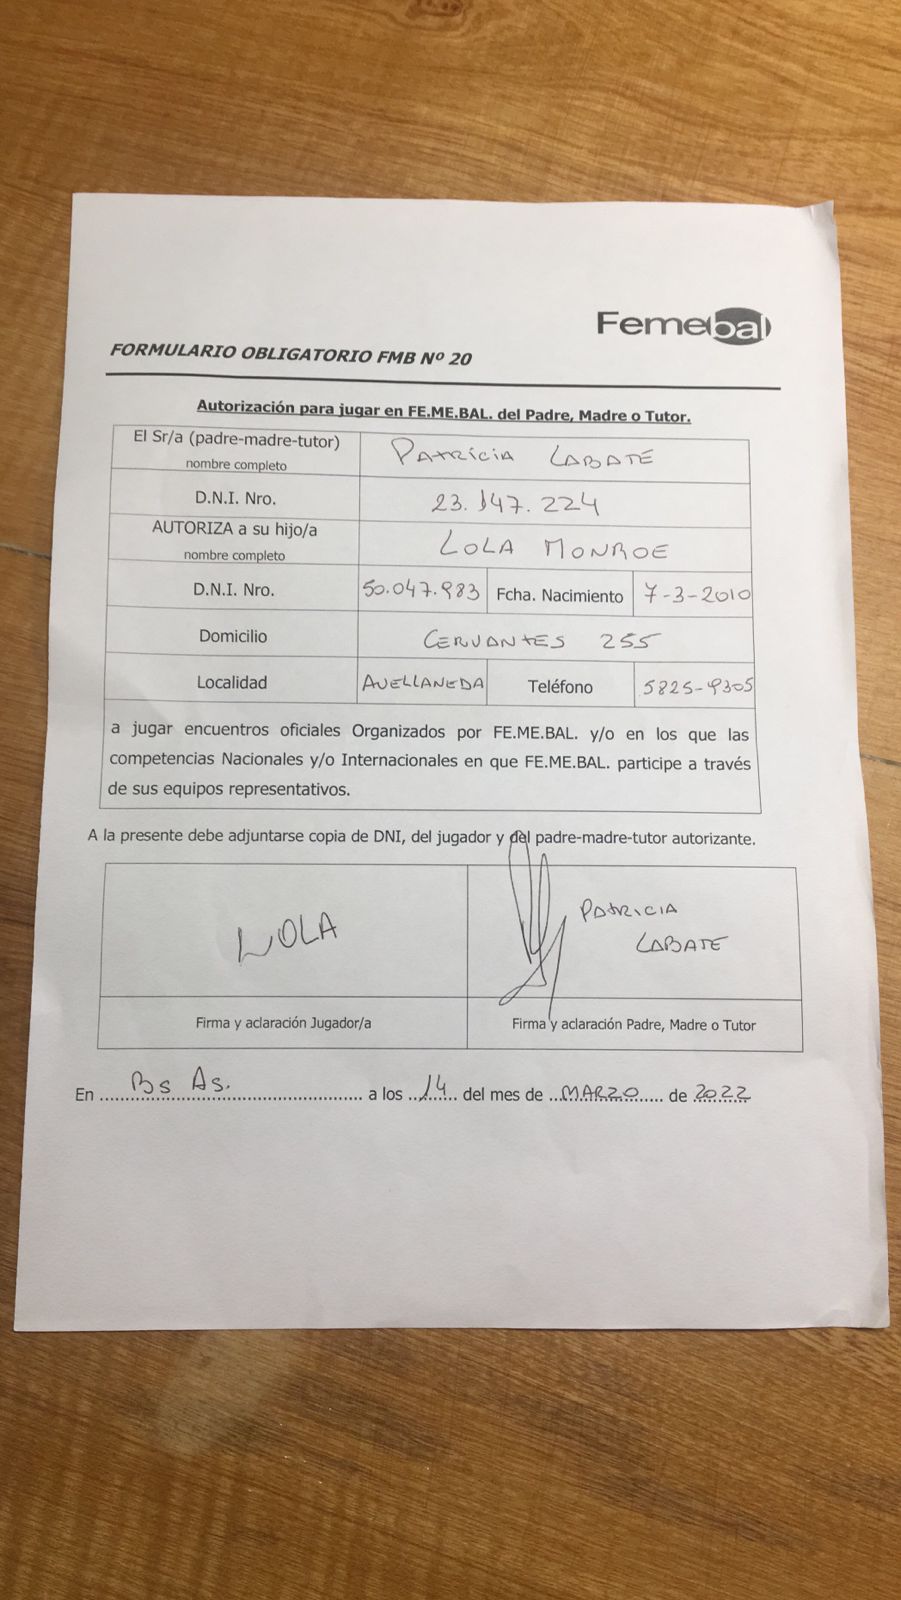 Femebal
FORMULARIO OBLIGATORIO FMB Nº 20
Autorización para jugar en FE.ME.BAL. del Padre, Madre o Tutor.
El Sr/a (padre-madre-tutor)
nombre completo
PATRICIA LABATE
D.N.I. Nro.
23.147.224
AUTORIZA a su hijo/a
nombre completo
LOLA MONROE
D.N.I. Nro.
50.047.983
Fcha. Nacimiento
7-3-2010
Domicilio
CERVANTES 255
Localidad
AVELLANEDA
Teléfono
5825-9305
a jugar encuentros oficiales Organizados por FE.ME.BAL. y/o en los que las
competencias Nacionales y/o Internacionales en que FE.ME.BAL. participe a través
de sus equipos representativos.
A la presente debe adjuntarse copia de DNI, del jugador y del padre-madre-tutor autorizante.
LOLA
PATRICIA
LABATE
Firma y aclaración Jugador/a
Firma y aclaración Padre, Madre o Tutor
En Bs As. a los 14 del mes de MARZO de 2022